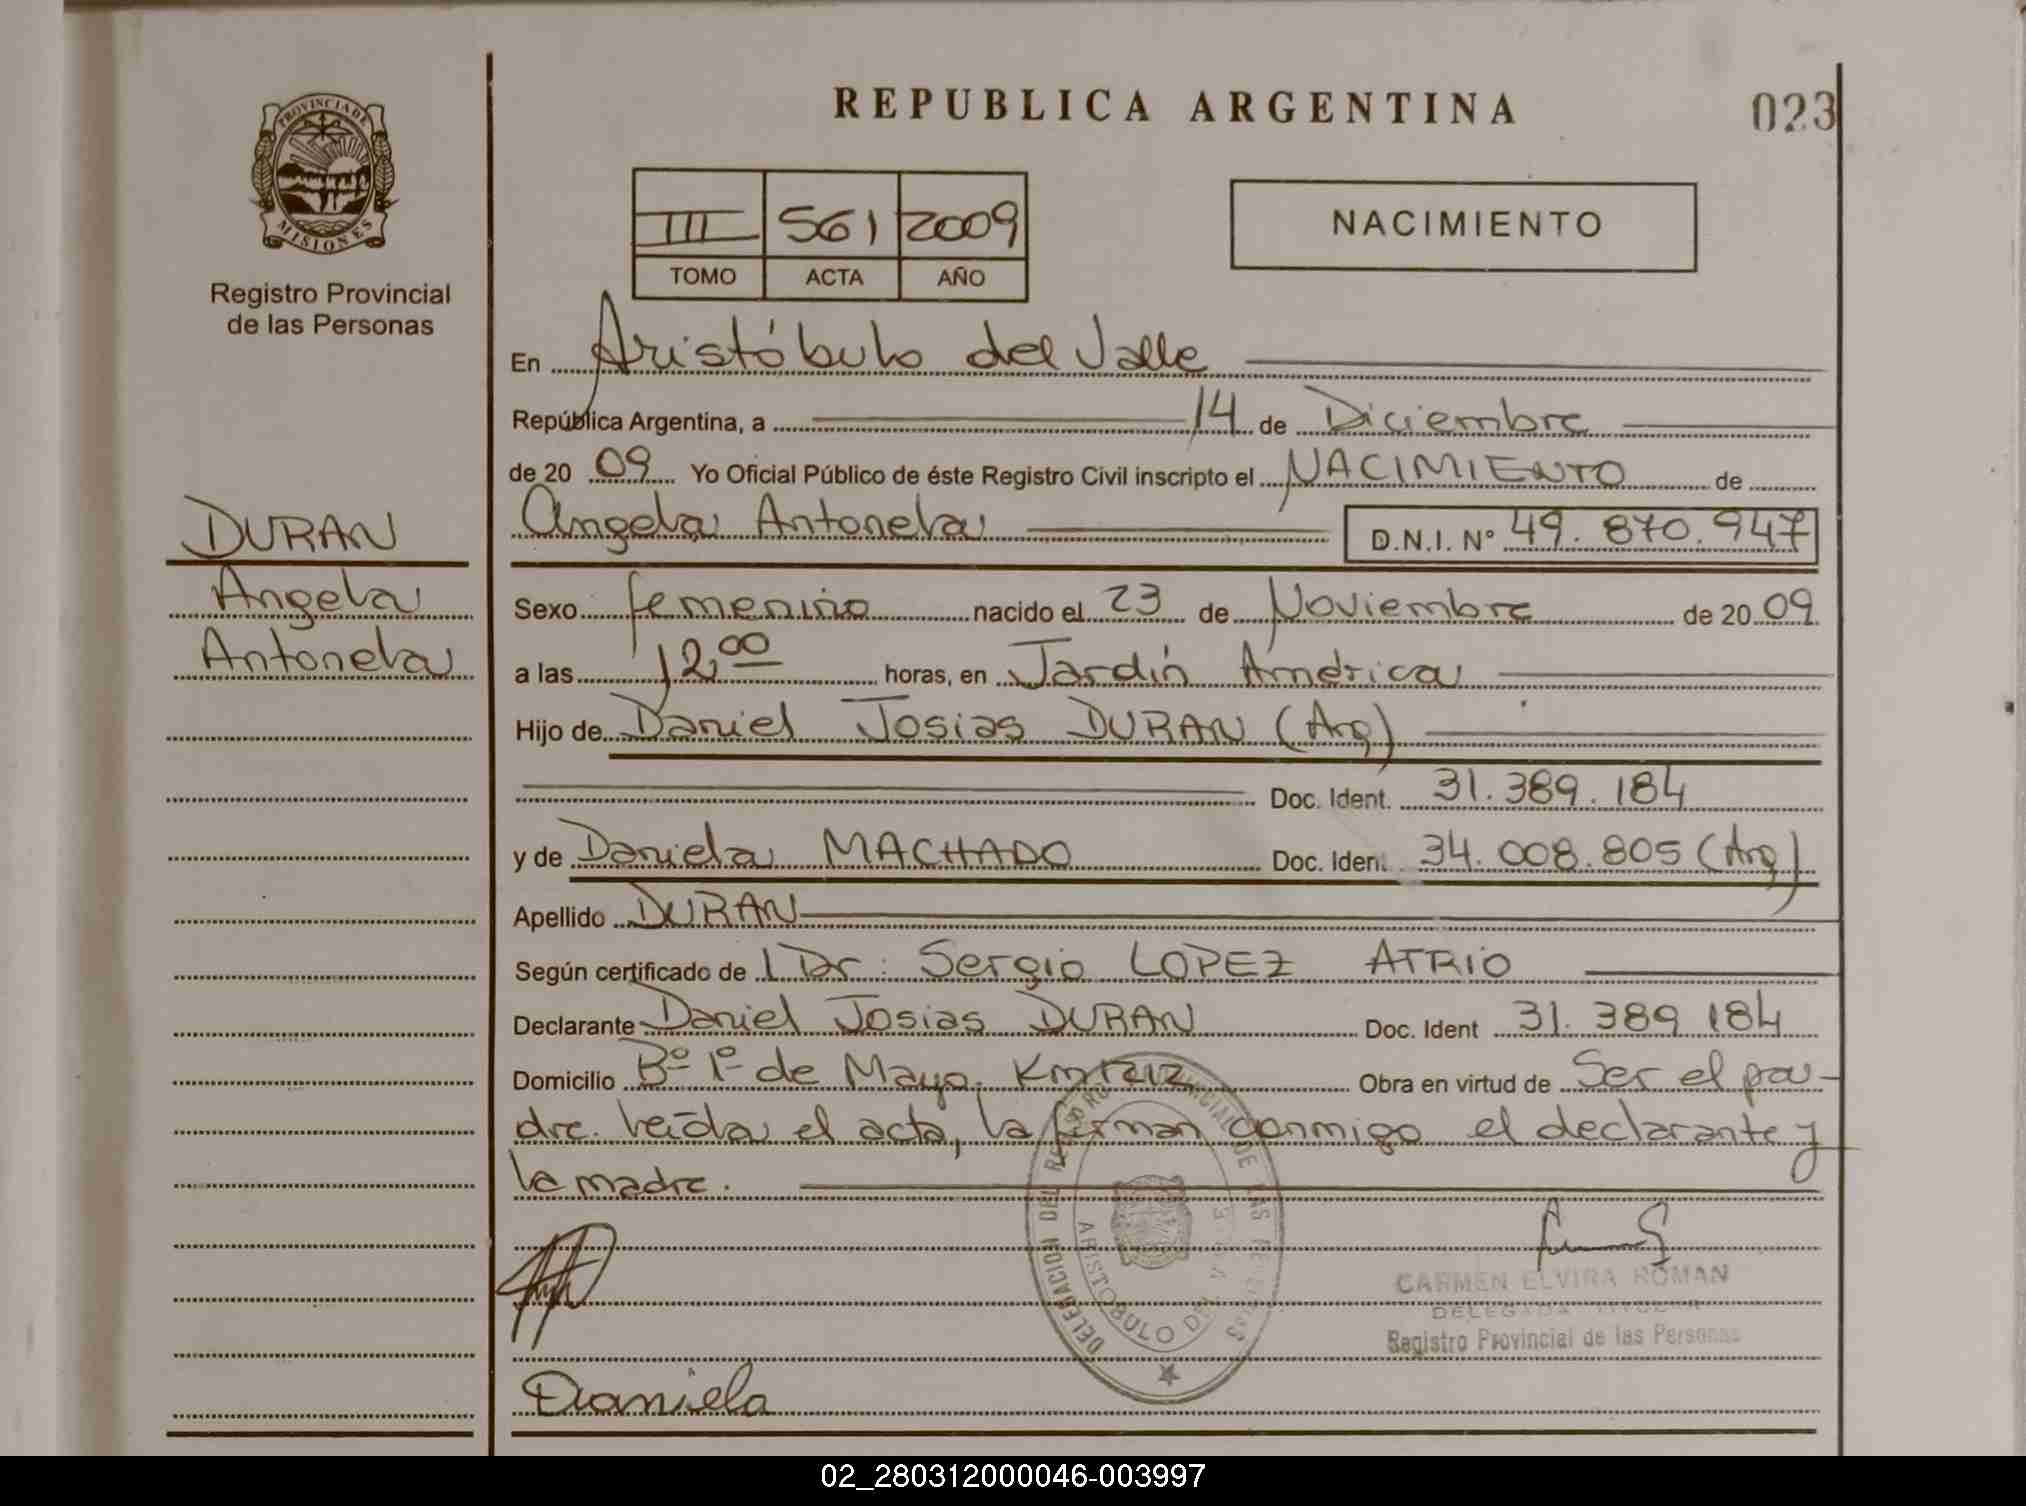 REPUBLICA ARGENTINA
023
PROVINCIA DE
MISIONES
Registro Provincial
de las Personas
III 561 2009
TOMO ACTA AÑO
NACIMIENTO
En Aristóbulo del Valle
República Argentina, a 14 de Diciembre
de 20 09 Yo Oficial Público de éste Registro Civil inscripto el NACIMIENTO de
DURAN
Angela Antonela D.N.I. Nº 49.870.947
Angela
Antonela
Sexo femenino nacido el 23 de Noviembre de 20 09
a las 12,00 horas, en Jardín América
Hijo de Daniel Josias DURAN (Arg)
Doc. Ident. 31.389.184
y de Daniela MACHADO Doc. Ident. 34.008.805 (Arg)
Apellido DURAN
Según certificado de l Dr: Sergio LOPEZ ATRIO
Declarante Daniel Josias DURAN Doc. Ident 31.389.184
Domicilio Bº 1º de Mayo. Obra en virtud de Ser el pa-
dre. leída el acta, la firman conmigo el declarante y
la madre.
DELEGACION DEL REGISTRO PROVINCIAL DE LAS PERSONAS
ARISTOBULO DEL VALLE
CARMEN ELVIRA ROMAN
DELEGADA TITULAR
Registro Provincial de las Personas
Daniela
02_280312000046-003997